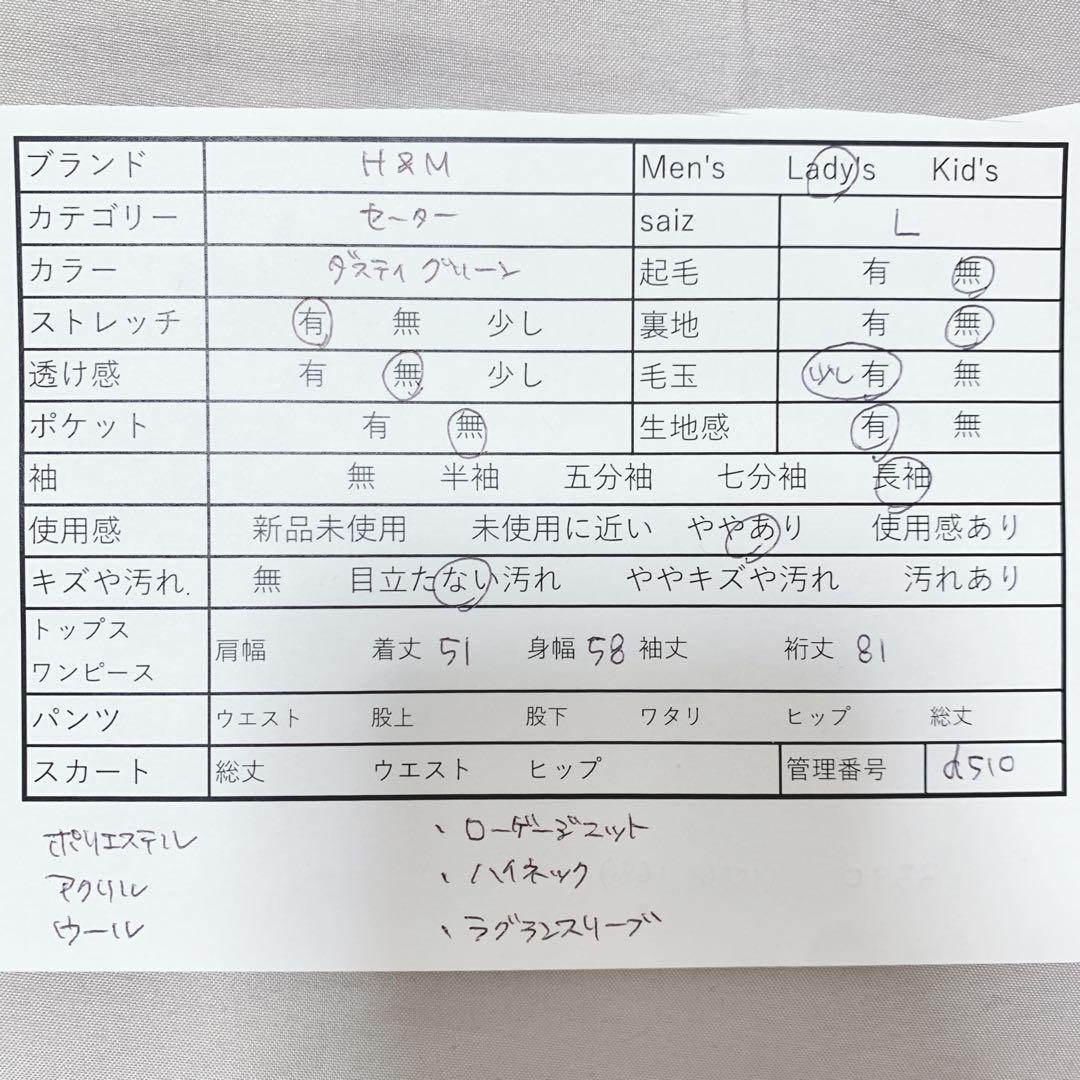 ブランド H&M Men's Lady's Kid's
カテゴリー セーター saiz L
カラー ダスティグリーン 起毛 有 無
ストレッチ 有 無 少し 裏地 有 無
透け感 有 無 少し 毛玉 少し 有 無
ポケット 有 無 生地感 有 無
袖 無 半袖 五分袖 七分袖 長袖
使用感 新品未使用 未使用に近い ややあり 使用感あり
キズや汚れ. 無 目立たない汚れ ややキズや汚れ 汚れあり
トップス
ワンピース 肩幅 着丈 51 身幅 58 袖丈 裄丈 81
パンツ ウエスト 股上 股下 ワタリ ヒップ 総丈
スカート 総丈 ウエスト ヒップ 管理番号 d510
ポリエステル 、ローゲージニット
アクリル 、ハイネック
ウール 、ラグランスリーブ